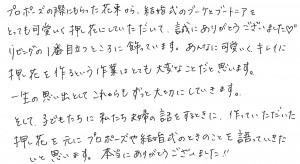 プロポーズの際にもらった花束から、結婚式のブーケとブートニアを
とっても可愛いく押し花にしていただいて、誠にありがとうございました♡
リビングの1番目立つところに飾っています。あんなに可愛いくキレイに
押し花を作るという作業はとても大変なことだと思います。
一生の思い出としてこれからもずっと大切にしていきます。
そして、子どもたちに私たち夫婦の話をするときに、作っていただいた
押し花を元にプロポーズや結婚式のときのことを語っていきた
いと思います。本当にありがとうございました!!